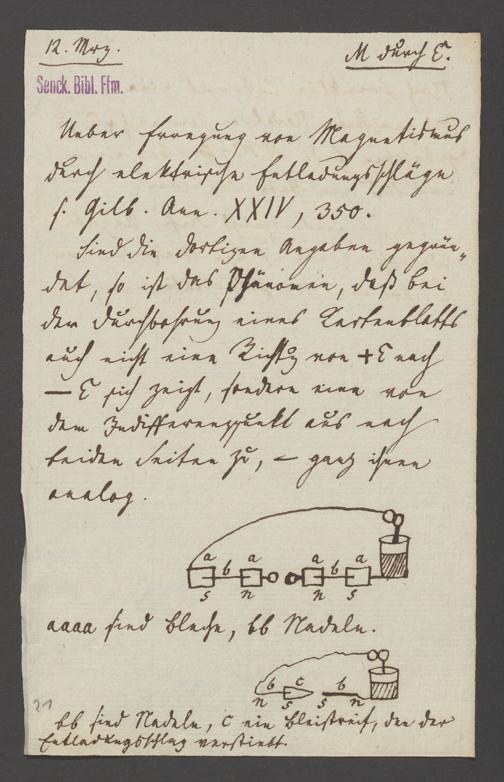 12. Mrz.
M durch E.
Senck. Bibl. Ffm.
Ueber Erregung von Magnetismus
durch elektrische Entladungsschläge
s. Gilb. Ann. XXIV, 350.
Sind die dortigen Angaben gegrün„
det, so ist das Phänomen, daß bei
der Durchbohrung eines Kartenblatts
auch nicht eine Richtg von +E nach
— E sich zeigt, sondern eine von
dem Indifferenzpunkt aus nach
beiden Seiten zu, — ganz ihnen
analog.
a b a a b a
s n n s
aaaa sind Bleche, bb Nadeln.
b c b
n s s n
21
bb sind Nadeln, c ein Bleistreif, den der
Entladungsschlag verstiebt.